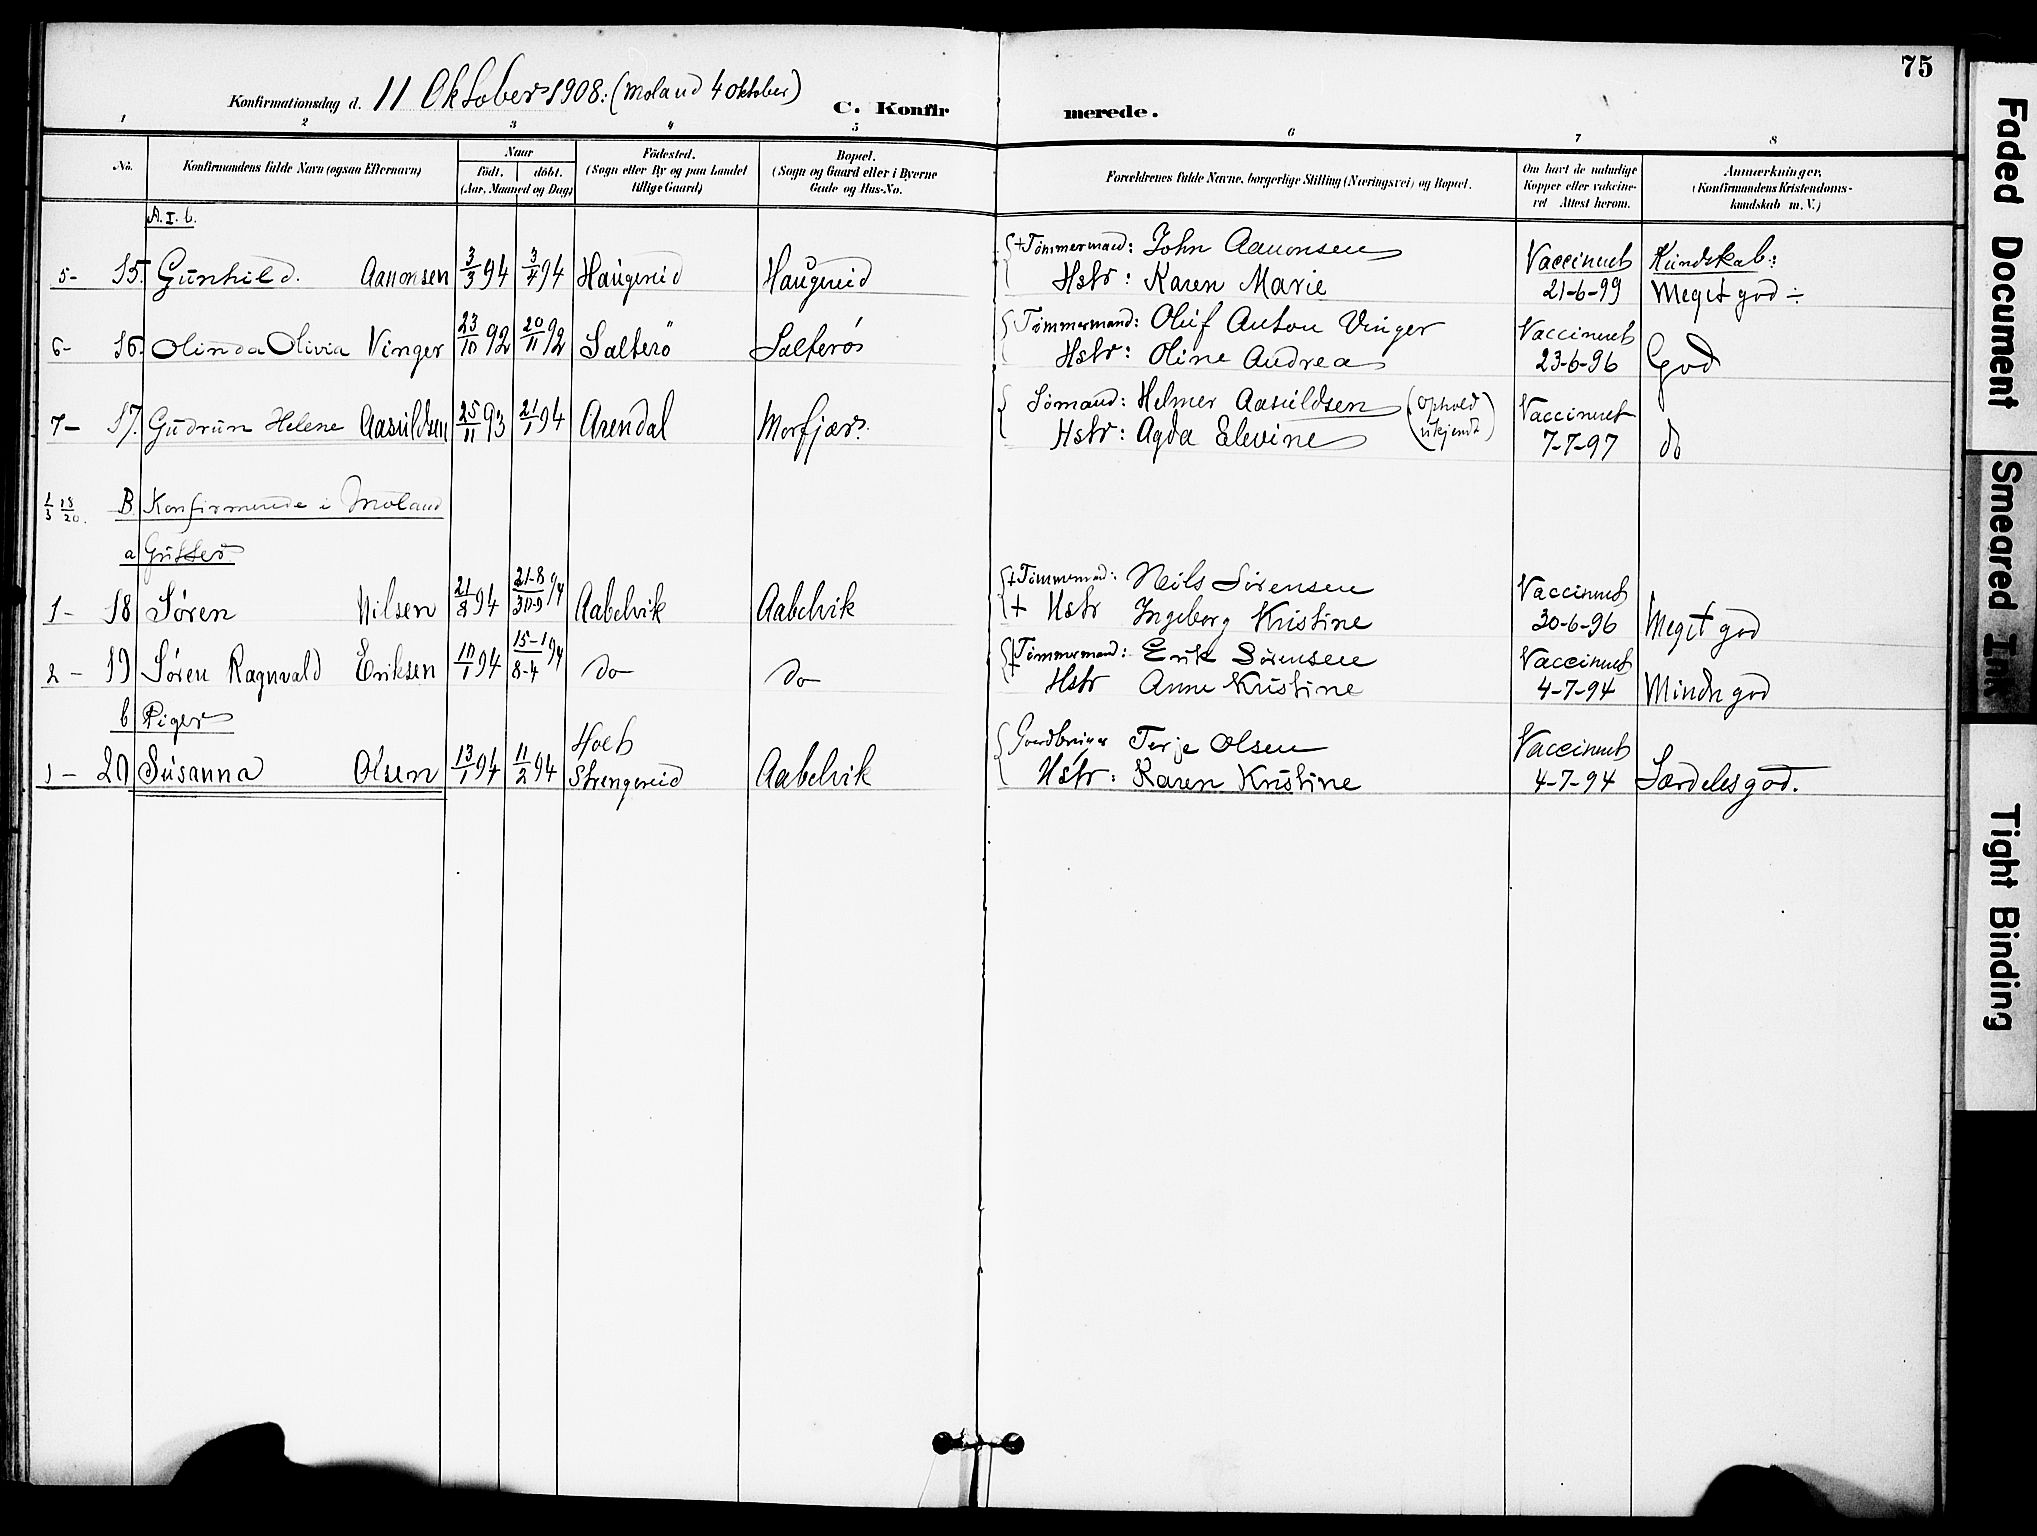 75
Konfirmationsdag d. 11 Oktober 1908: (Moland 4 oktober)
C. Konfir merede.
1 2 3 4 5 6 7 8
No.
Konfirmandens fulde Navn (ogsaa Efternavn)
Naar
født. døbt.
(Aar, Maaned og Dag)
Fødested.
(Sogn eller By og paa Landet
tillige Gaard)
Bopæl.
(Sogn og Gaard eller i Byerne
Gade og Hus-No.
Forældrenes fulde Navne, borgerlige Stilling (Næringsvei) og Bopæl.
Om havt de naturlige
Kopper eller vakcine-
ret Attest herom.
Anmærkninger,
(Konfirmandens Kristendoms-
kundskab m. V.)
A. I. b.
5- 15. Gunhild. Aanonsen 3/3 94 3/4 94 Haugereid Haugereid
+Tømmermand: John Aanonsen
Hstr: Karen Marie
Vaccineret
21-6-99
Kundskab:
Meget god ÷
6- 16. Olinda Olivia Vinger 23/10 92 20/11 92 Salterö Salterö
Tømmermand: Oluf Anton Vinger
Hstr: Oline Andrea
Vaccineret
23-6-96
God
7- 17. Gudrun Helene Aasuldsen 25/11 93 21/1 94 Arendal Morfjær
Sømand: Helmer Aasuldsen (Ophold
ukjendt)
Hstr: Agda Elevine
Vaccineret
7-7-97
do
1/3 18/20. B. Konfirmerede i Moland
a Gutter
1- 18 Søren Nilsen 21/8 94 21-8/30-9 94 Aabelvik Aabelvik
+Tømmermd: Neils Sørensen
+ Hstr Ingeborg Kristine
Vaccineret
30-6-96
Meget god
2- 19 Søren Ragnvald Eriksen 10/1 94 15-1/8-4 94 do do
+Tømmermand: Erik Sørensen
Hstr Anne Kristine
Vaccineret
4-7-94
Mindre god
b Piger
1- 20 Susanna Olsen 13/1 94 11/2 94 Holt
Strengereid Aabelvik
Gaardbruger Terje Olsen
Hstr: Karen Kristine
Vaccineret
4-7-94
Særdeles god.
Faded Document
Smeared Ink
Tight Binding